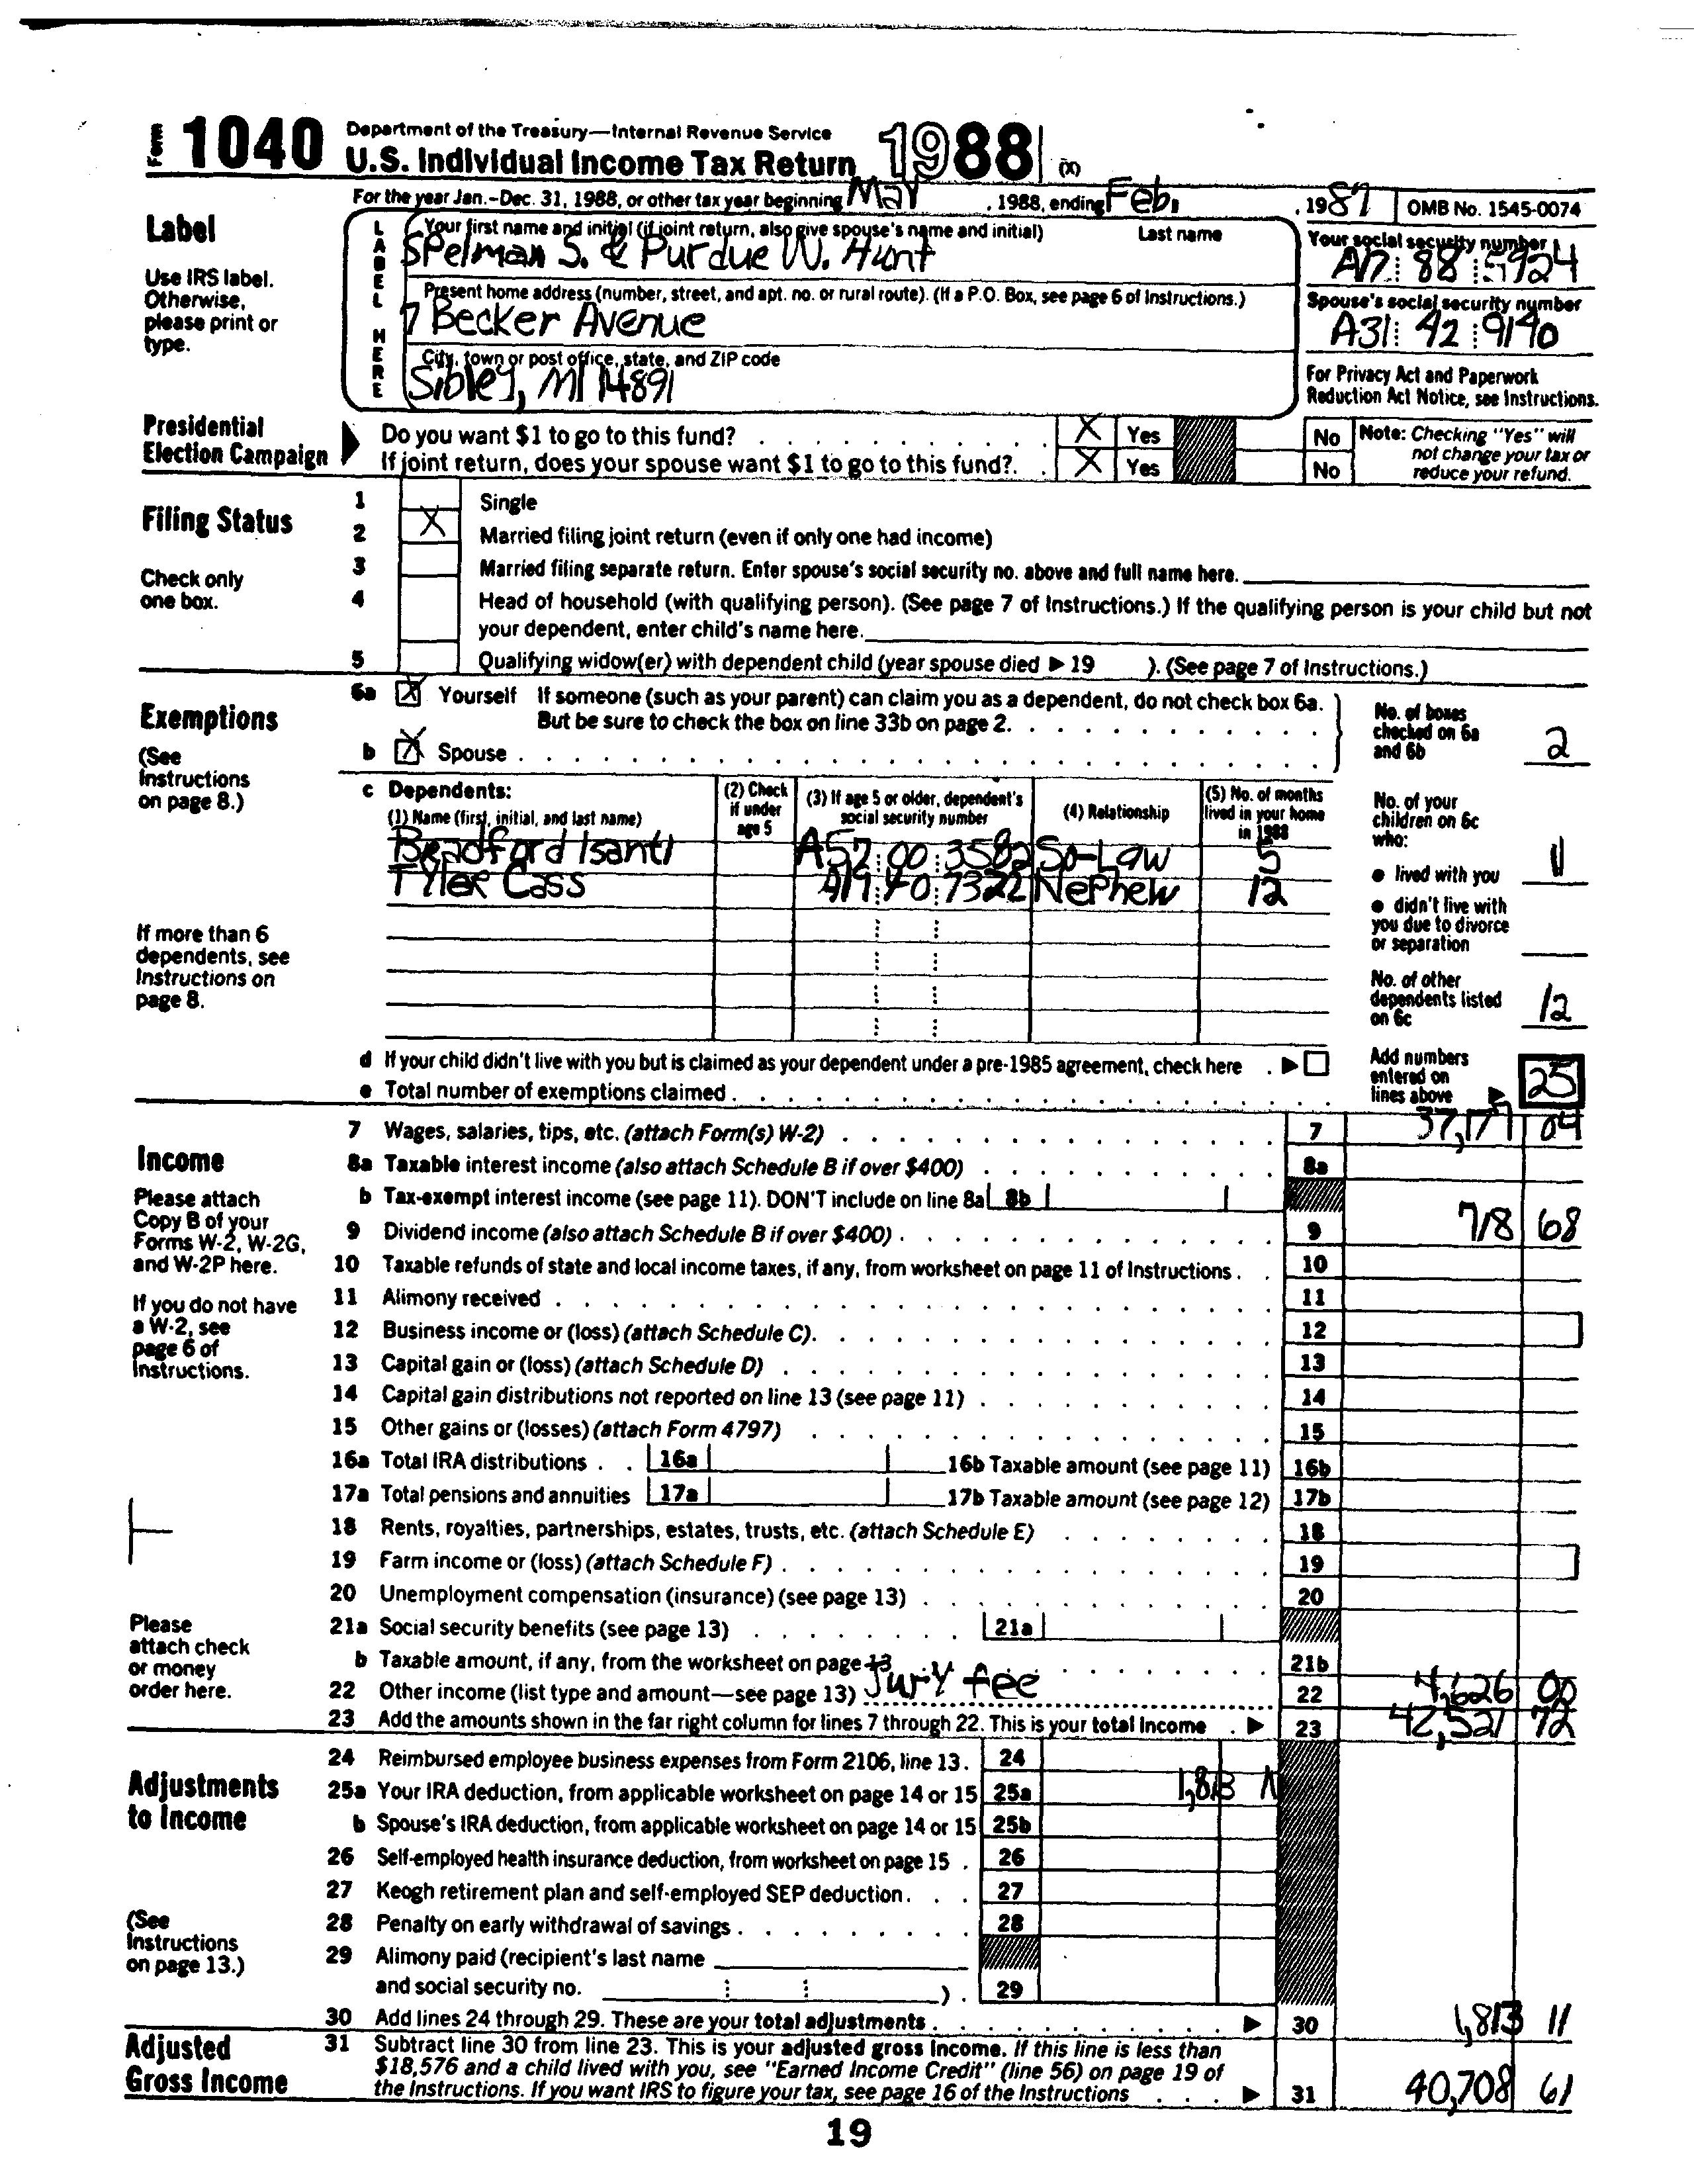 Form 1040 Department of the Treasury—Internal Revenue Service
U.S. Individual Income Tax Return 1988 (X)
For the year Jan.-Dec. 31, 1988, or other tax year beginning May , 1988, ending Feb. , 1987 OMB No. 1545-0074
Label
Use IRS label.
Otherwise,
please print or
type.
LABEL HERE
Your first name and initial (if joint return, also give spouse's name and initial) Last name
Spelman S. & Purdue W. Hunt
Your social security number
88 5924
Present home address (number, street, and apt. no. or rural route). (If a P.O. Box, see page 6 of Instructions.)
7 Becker Avenue
Spouse's social security number
A31 42 9190
City, town or post office, state, and ZIP code
Sibley, MI 14891
For Privacy Act and Paperwork
Reduction Act Notice, see Instructions.
Presidential
Election Campaign
Do you want $1 to go to this fund? X Yes No
If joint return, does your spouse want $1 to go to this fund? X Yes No
Note: Checking "Yes" will
not change your tax or
reduce your refund.
Filing Status
Check only
one box.
1 Single
2 X Married filing joint return (even if only one had income)
3 Married filing separate return. Enter spouse's social security no. above and full name here.
4 Head of household (with qualifying person). (See page 7 of Instructions.) If the qualifying person is your child but not
your dependent, enter child's name here.
5 Qualifying widow(er) with dependent child (year spouse died ▶ 19 ). (See page 7 of Instructions.)
Exemptions
(See
Instructions
on page 8.)
6a X Yourself If someone (such as your parent) can claim you as a dependent, do not check box 6a.
But be sure to check the box on line 33b on page 2.
b X Spouse
No. of boxes
checked on 6a
and 6b 2
c Dependents:
(1) Name (first, initial, and last name)
(2) Check
if under
age 5
(3) If age 5 or older, dependent's
social security number
(4) Relationship
(5) No. of months
lived in your home
in 1988
Bradford Isanti A57 00 3582 So-Law 5
Tyler Cass 40 7322 Nephew 12
No. of your
children on 6c
who:
● lived with you 11
● didn't live with
you due to divorce
or separation
No. of other
dependents listed
on 6c 12
If more than 6
dependents, see
Instructions on
page 8.
d If your child didn't live with you but is claimed as your dependent under a pre-1985 agreement, check here ▶
e Total number of exemptions claimed
Add numbers
entered on
lines above ▶ 25
Income
Please attach
Copy B of your
Forms W-2, W-2G,
and W-2P here.
If you do not have
a W-2, see
page 6 of
Instructions.
Please
attach check
or money
order here.
7 Wages, salaries, tips, etc. (attach Form(s) W-2) 7 37,177 04
8a Taxable interest income (also attach Schedule B if over $400) 8a
b Tax-exempt interest income (see page 11). DON'T include on line 8a 8b
9 Dividend income (also attach Schedule B if over $400) 9 718 68
10 Taxable refunds of state and local income taxes, if any, from worksheet on page 11 of Instructions 10
11 Alimony received 11
12 Business income or (loss) (attach Schedule C) 12
13 Capital gain or (loss) (attach Schedule D) 13
14 Capital gain distributions not reported on line 13 (see page 11) 14
15 Other gains or (losses) (attach Form 4797) 15
16a Total IRA distributions 16a 16b Taxable amount (see page 11) 16b
17a Total pensions and annuities 17a 17b Taxable amount (see page 12) 17b
18 Rents, royalties, partnerships, estates, trusts, etc. (attach Schedule E) 18
19 Farm income or (loss) (attach Schedule F) 19
20 Unemployment compensation (insurance) (see page 13) 20
21a Social security benefits (see page 13) 21a
b Taxable amount, if any, from the worksheet on page 13 21b
22 Other income (list type and amount—see page 13) Jury fee 22 4,626 00
23 Add the amounts shown in the far right column for lines 7 through 22. This is your total income ▶ 23 42,521 72
Adjustments
to Income
(See
Instructions
on page 13.)
24 Reimbursed employee business expenses from Form 2106, line 13 24
25a Your IRA deduction, from applicable worksheet on page 14 or 15 25a 1,813
b Spouse's IRA deduction, from applicable worksheet on page 14 or 15 25b
26 Self-employed health insurance deduction, from worksheet on page 15 26
27 Keogh retirement plan and self-employed SEP deduction 27
28 Penalty on early withdrawal of savings 28
29 Alimony paid (recipient's last name
and social security no. ) 29
30 Add lines 24 through 29. These are your total adjustments ▶ 30 1,813 11
Adjusted
Gross Income
31 Subtract line 30 from line 23. This is your adjusted gross income. If this line is less than
$18,576 and a child lived with you, see "Earned Income Credit" (line 56) on page 19 of
the Instructions. If you want IRS to figure your tax, see page 16 of the Instructions ▶ 31 40,708 61
19